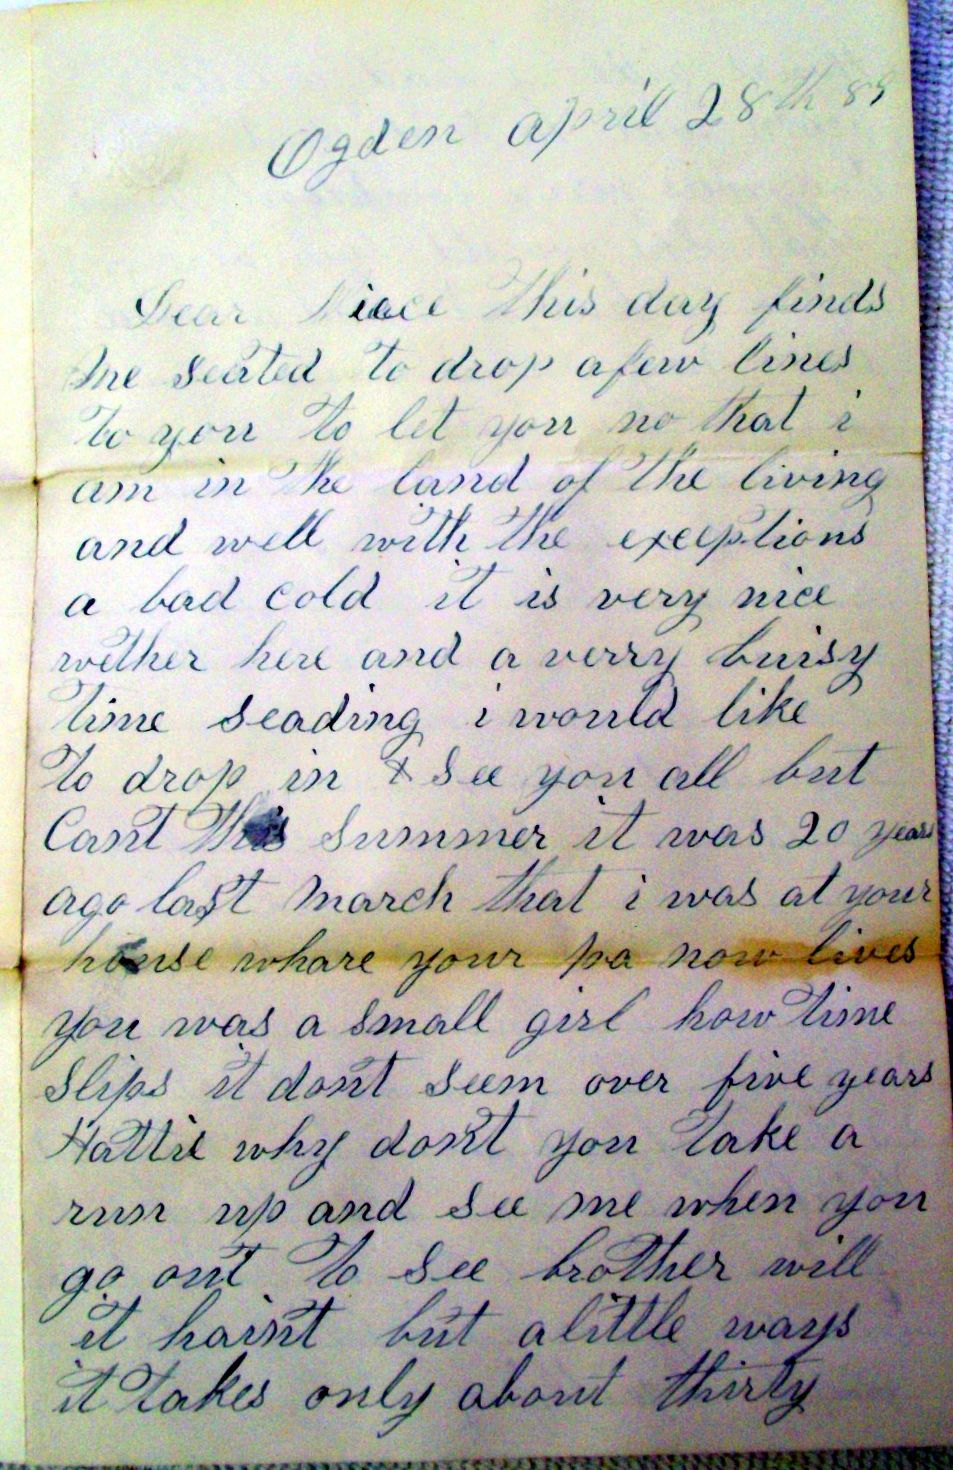 Ogden april 28th 89
Dear Niece this day finds
me seated to drop a few lines
to you to let you no that i
am in the land of the living
and well with the exceptions
a bad cold it is very nice
wether here and a verry buisy
time seading i would like
to drop in & see you all but
Cant this Summer it was 20 years
ago last March that i was at your
house whare your pa now lives
you was a small girl how time
slips it dont seem over five years
Hattie why dont you take a
run up and see me when you
go out to see brother will
it haint but a little ways
it takes only about thirty